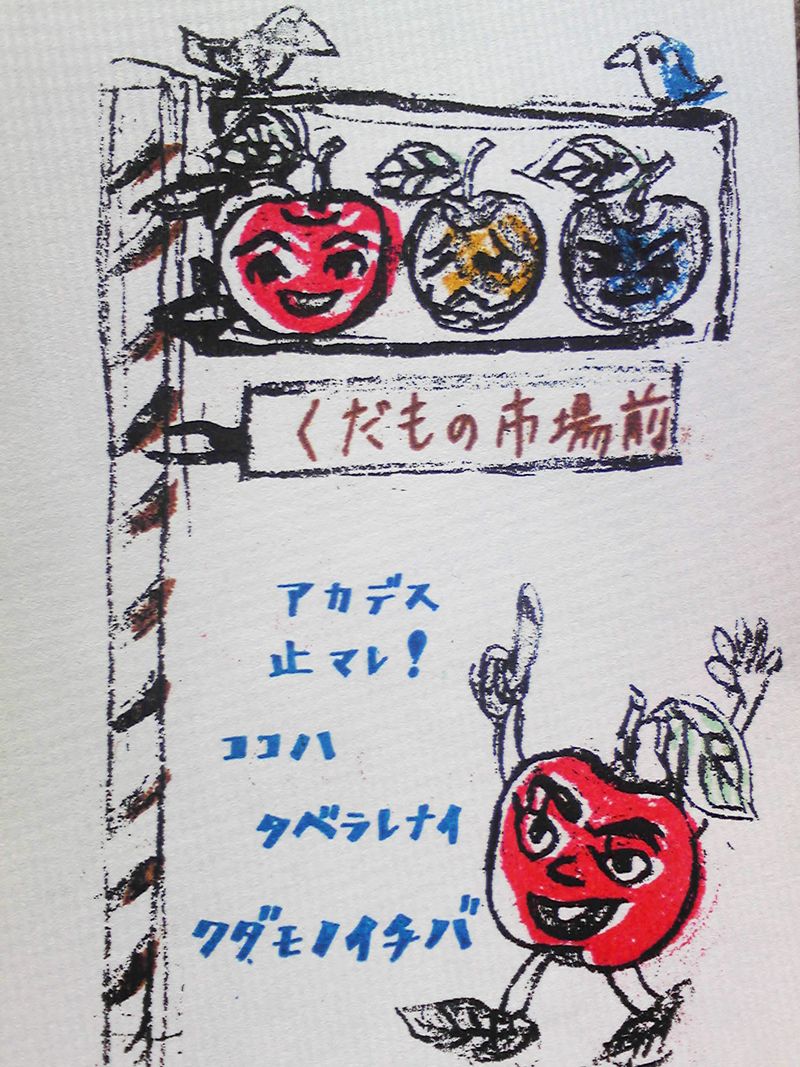 くだもの市場前
アカデス
止マレ!
ココハ
タベラレナイ
クダモノイチバ